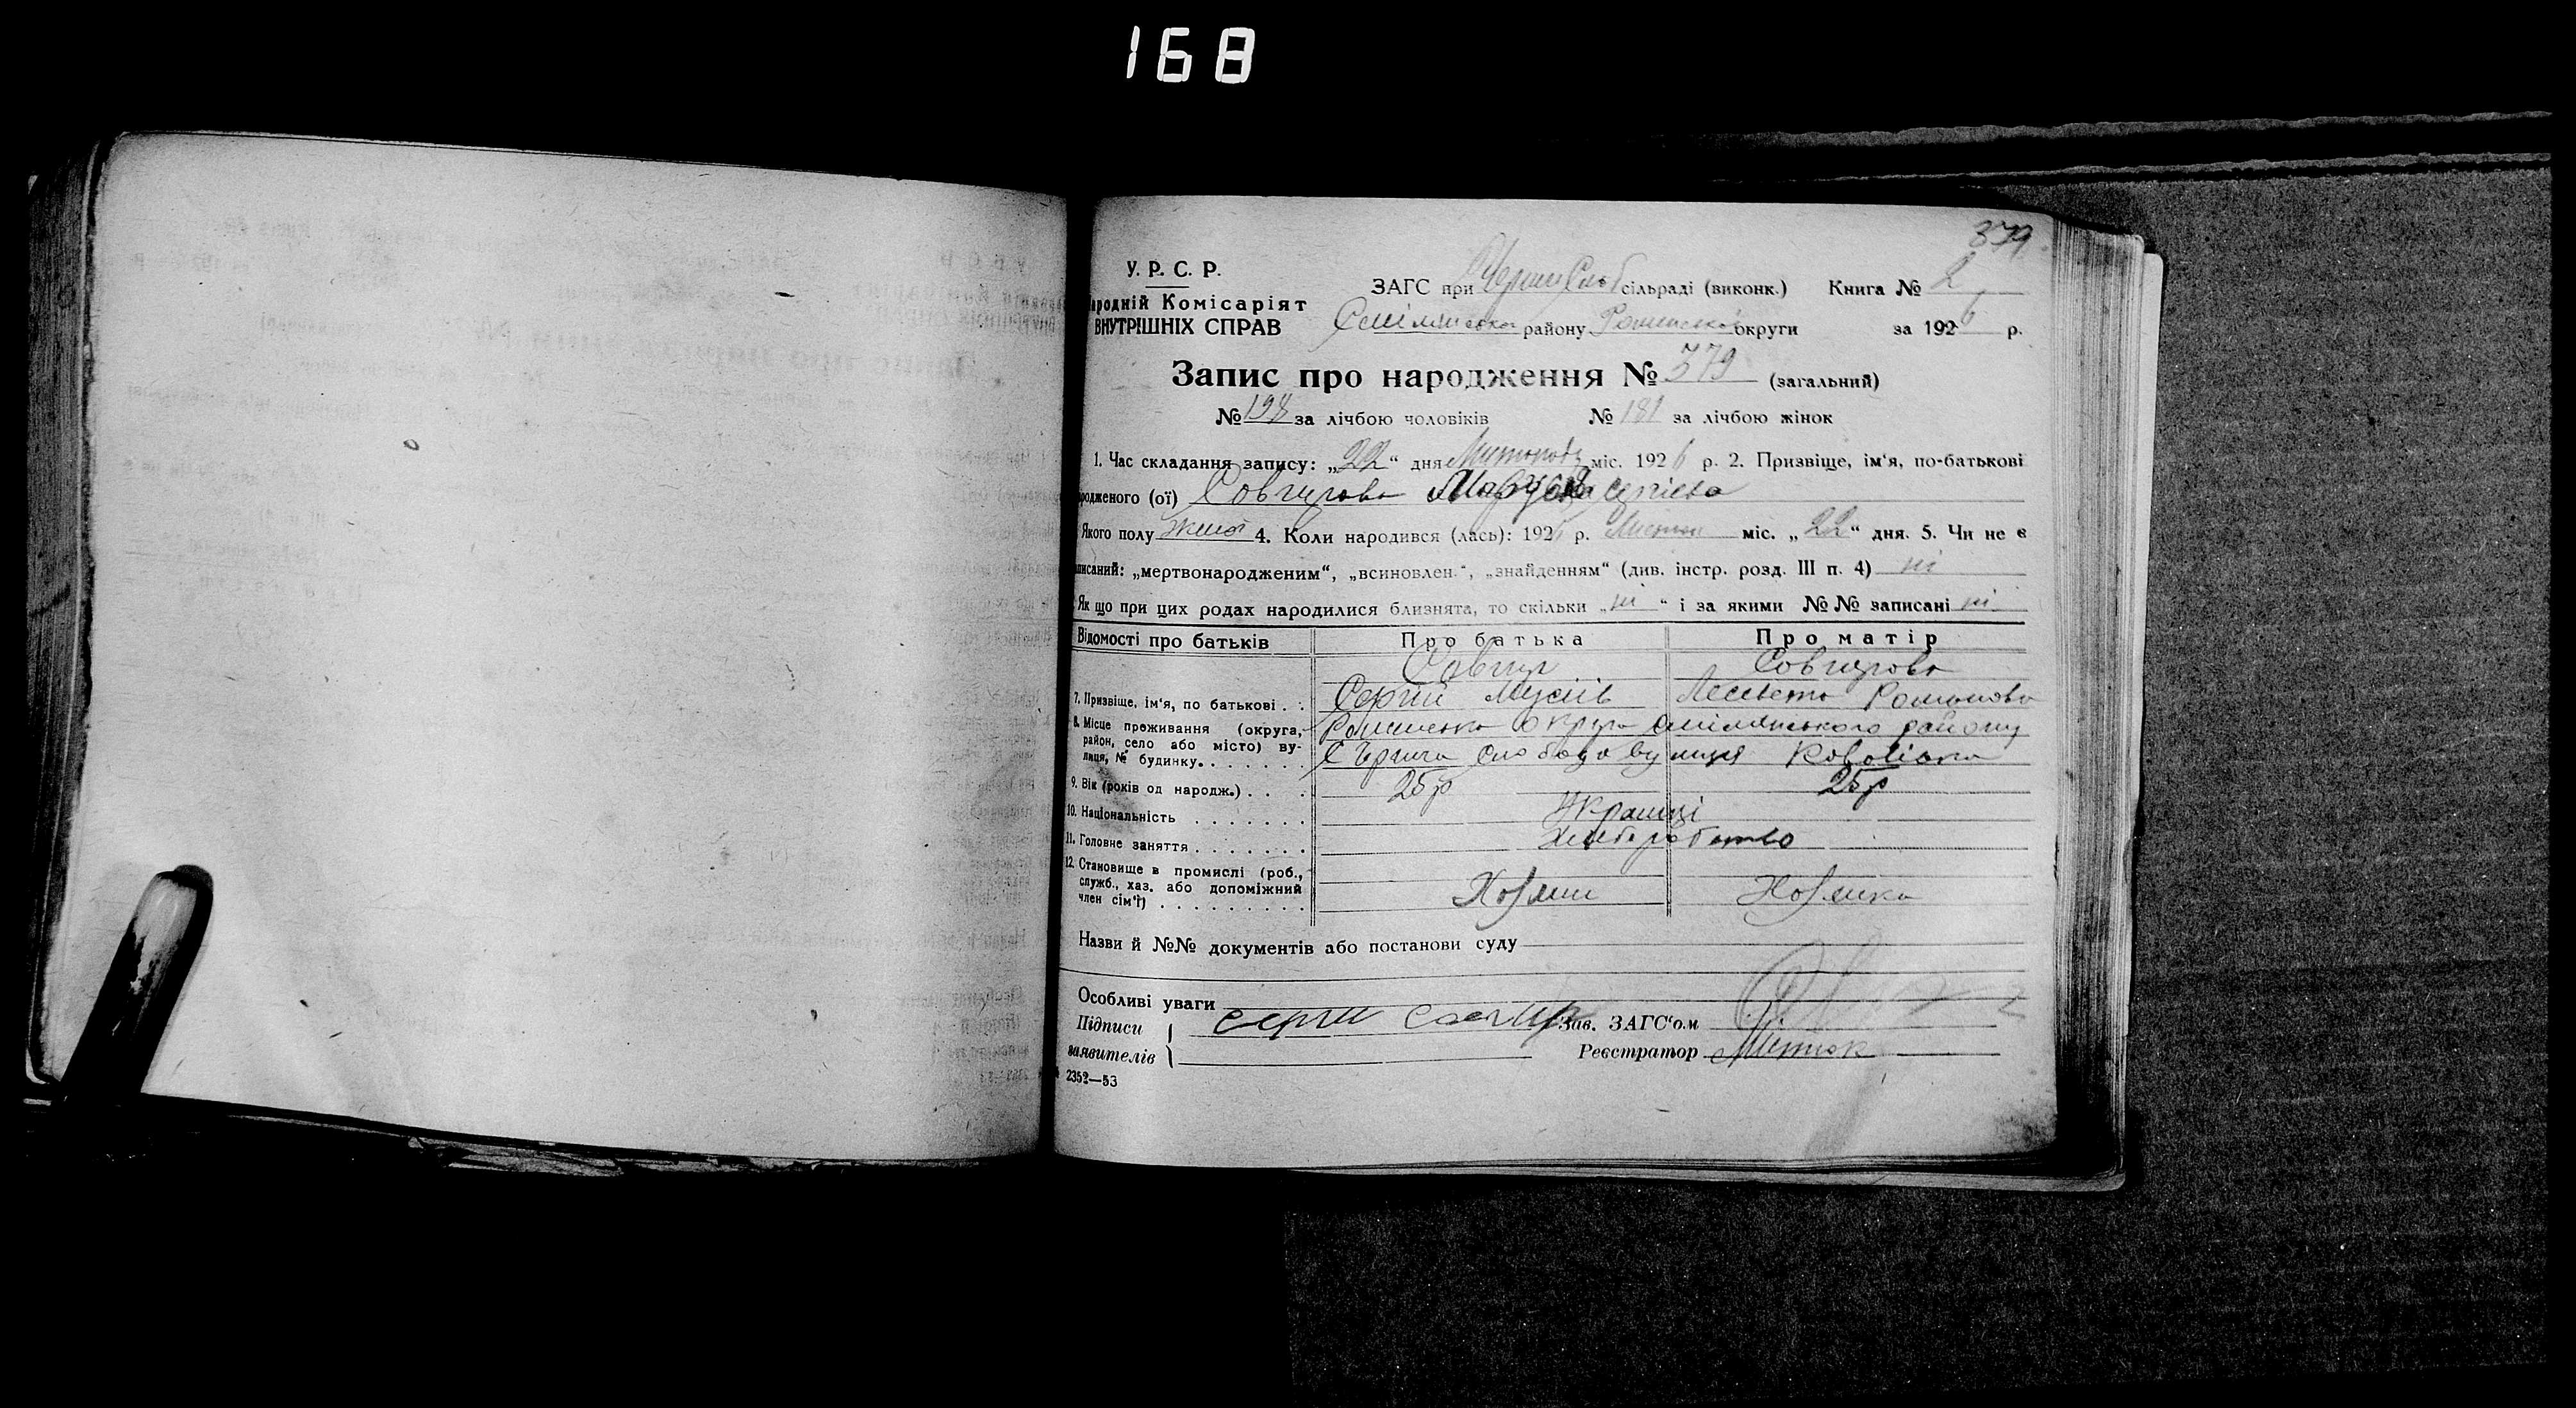 168
379
У. Р. С. Р.
ЗАГС при Черни Слоб сільраді (виконк.) Книга № 2
ародній Комісаріят
ВНУТРІШНІХ СПРАВ
району Роменської округи за 1926 р.
Запис про народження № 379 (загальний)
№ 198 за лічбою чоловіків № 181 за лічбою жінок
1. Час складання запису: „22“ дня міс. 1926 р. 2. Призвіще, ім‘я, по-батькові
родженого (ої) Совгирова Маруся Сергієва
Якого полу 4. Коли народився (лась): 1926 р. міс. „22“ дня. 5. Чи не є
писаний: „мертвонародженим“, „всиновлен.“, „знайденням“ (див. інстр. розд. III п. 4) ні
Як що при цих родах народилися близнята, то скільки „ні“ і за якими №№ записані ні
Відомості про батьків Про батька Про матір
Совгир Совгирова
7. Призвіще, ім‘я, по батькові . . Сергій Мусіів Романова
8. Місце проживання (округа, район, село або місто) вулиця, № будинку. . . . . . Роменська округа Смілянського району
слобода вулиця
9. Вік (років од народж.) . . . 25 р 25 р
10. Національність . . . . . . . Українці
11. Головне заняття . . . . . . . Хліборобство
12. Становище в промислі (роб., служб., хаз. або допоміжний член сім‘ї) . . . . . . . . . Хозяин Хозяика
Назви й №№ документів або постанови суду
Особливі уваги
Підписи Сергій Совгир Зав. ЗАГС‘ом
заявителів Реєстратор
2352—53